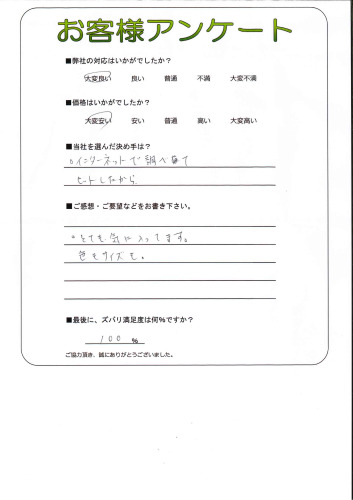 お客様アンケート
■弊社の対応はいかがでしたか？
大変良い 良い 普通 不満 大変不満
■価格はいかがでしたか？
大変安い 安い 普通 高い 大変高い
■当社を選んだ決め手は？
○インターネットで調べ
ヒットしたから
■ご感想・ご要望などをお書き下さい。
○とても気に入ってます。
色もサイズも。
■最後に、ズバリ満足度は何％ですか？
100 ％
ご協力頂き、誠にありがとうございました。